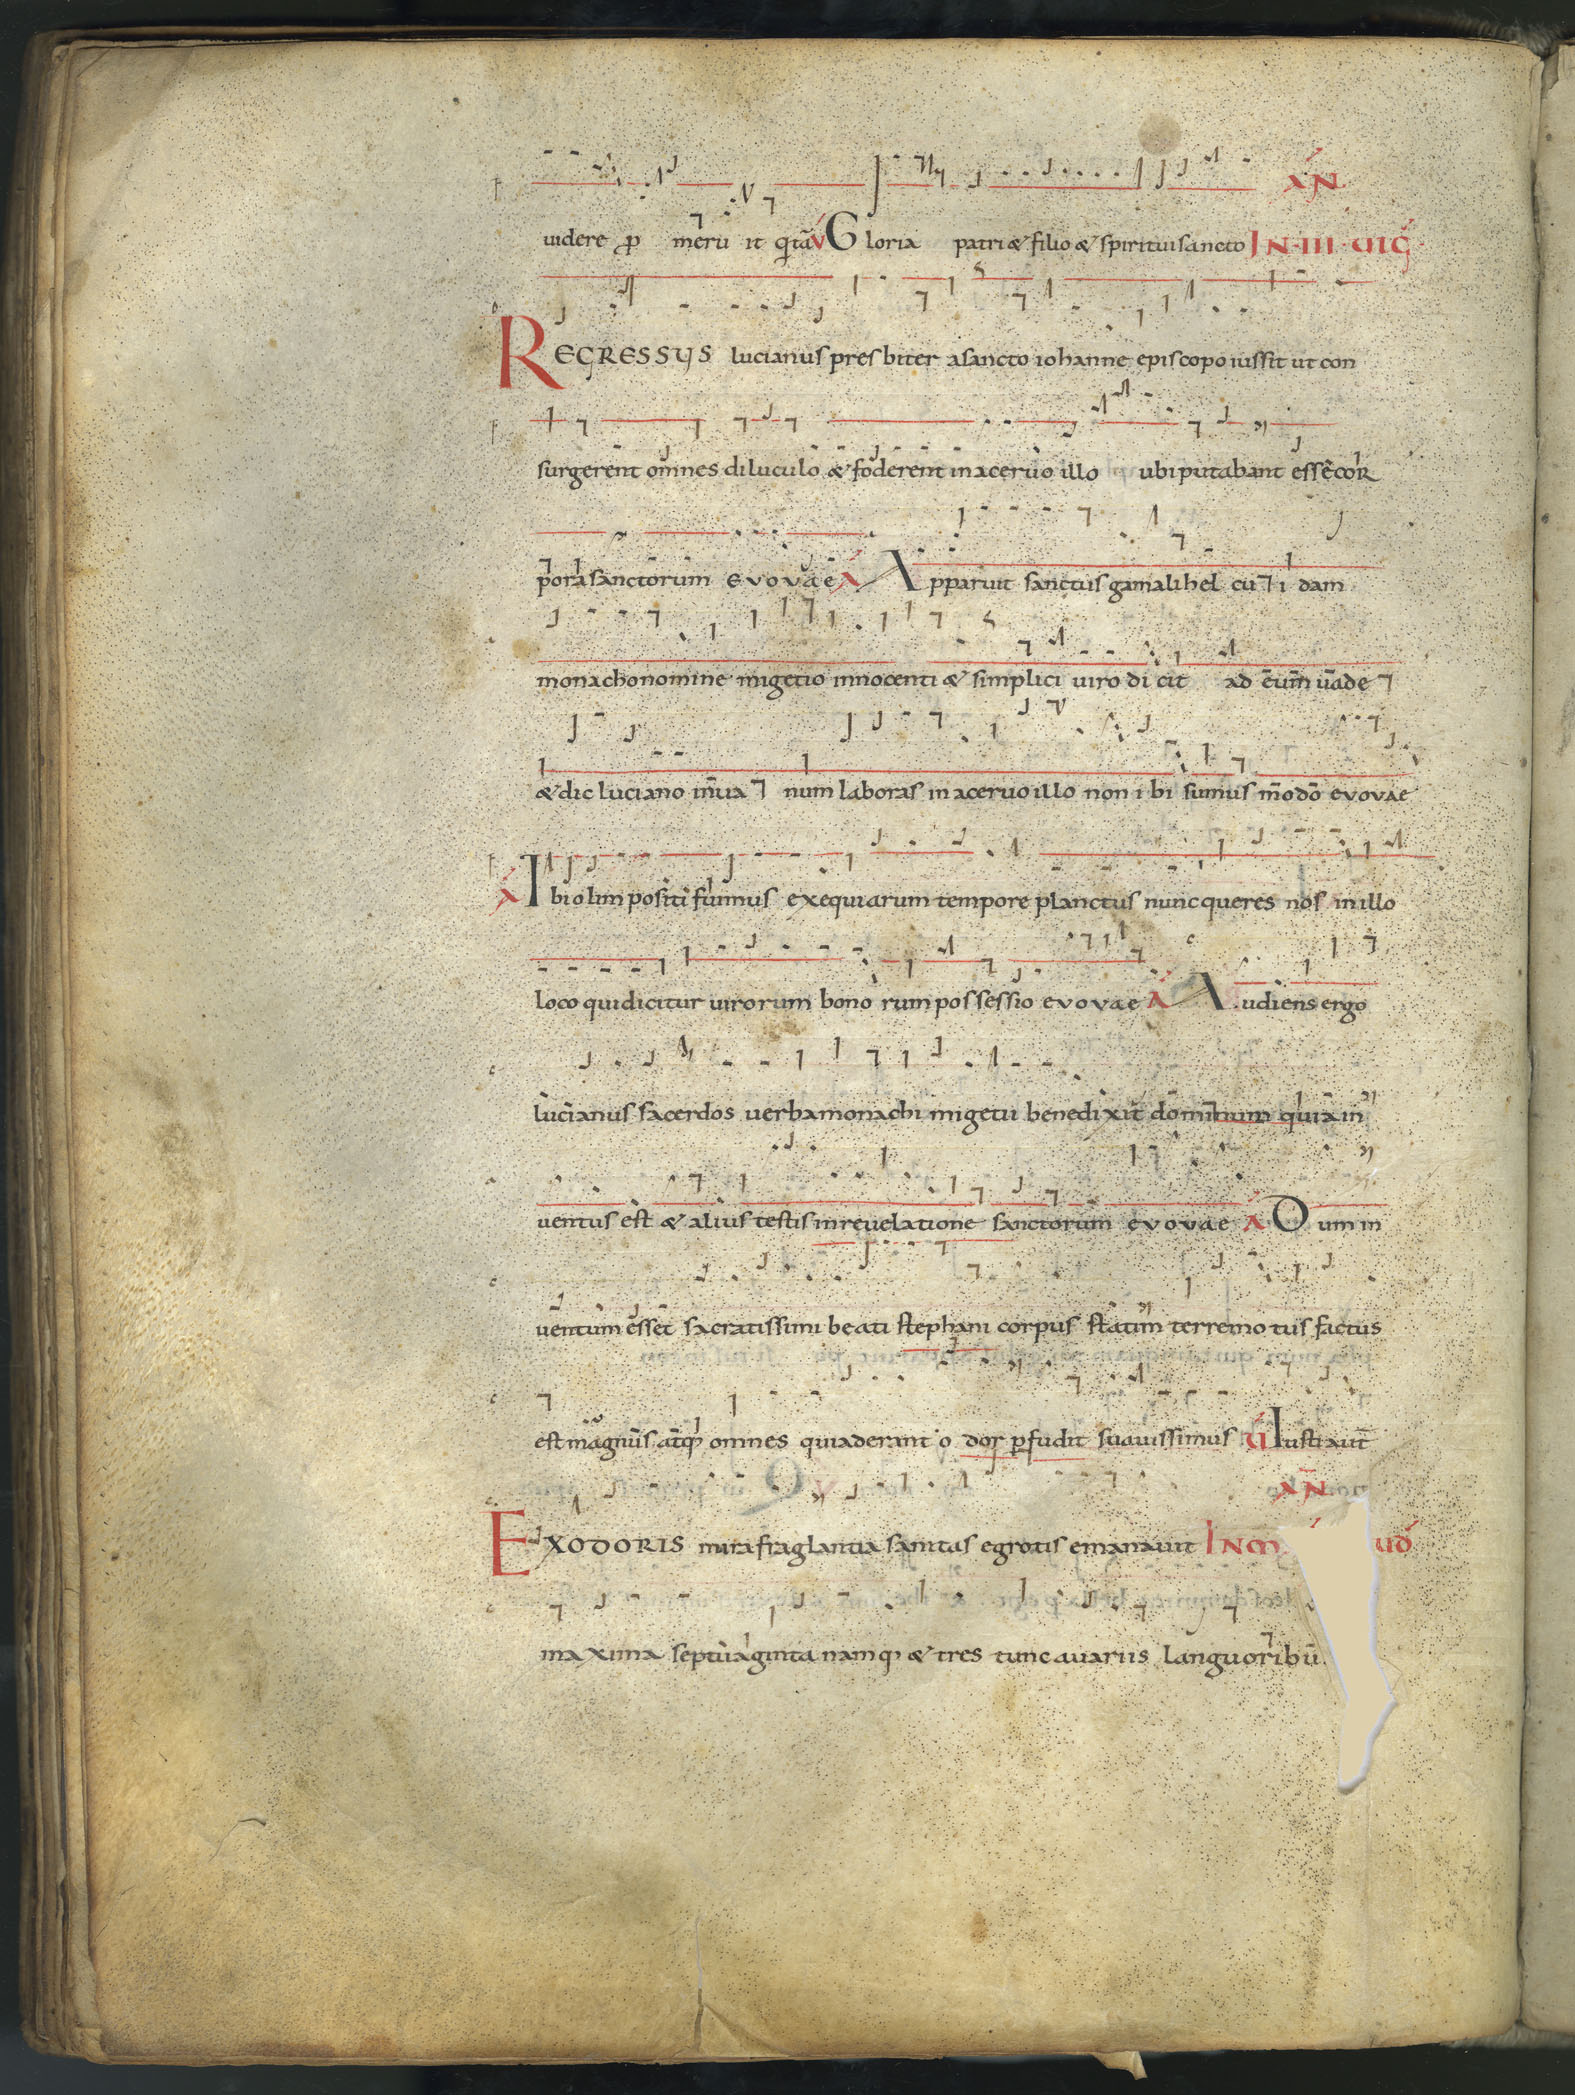 AN
uidere p meru it qta V Gloria patri & filio & spiritui sancto IN III UIG
REGRESSUS lucianus presbiter a sancto iohanne episcopo iussit ut con
surgerent omnes diluculo & foderent in aceruo illo ubi putabant esse cor
pora sanctorum evovae A Apparuit sanctus gamalihel cu i dam
monacho nomine migetio innocenti & simplici uiro di cit ad eum uade
& dic luciano in ua num laboras in aceruo illo non i bi sumus modo evovae
A Ibi olim positi fuimus exequiarum tempore planctus nunc queres nos in illo
loco qui dicitur uirorum bono rum possessio evovae A Audiens ergo
lucianus sacerdos uerba monachi migetii benedixit dominum quia in
uentus est & alius testis in reuelatione sanctorum evovae A Dum in
uentum esset sacratissimi beati stephani corpus statim terremo tus factus
est magnus atq omnes qui aderant o dor pfudit suauissimus U Iustrauit
AN
EX ODORIS mira fraglantia sanitas egrotis emanauit IN M UD
maxima septuaginta namq & tres tunc a uariis languoribu